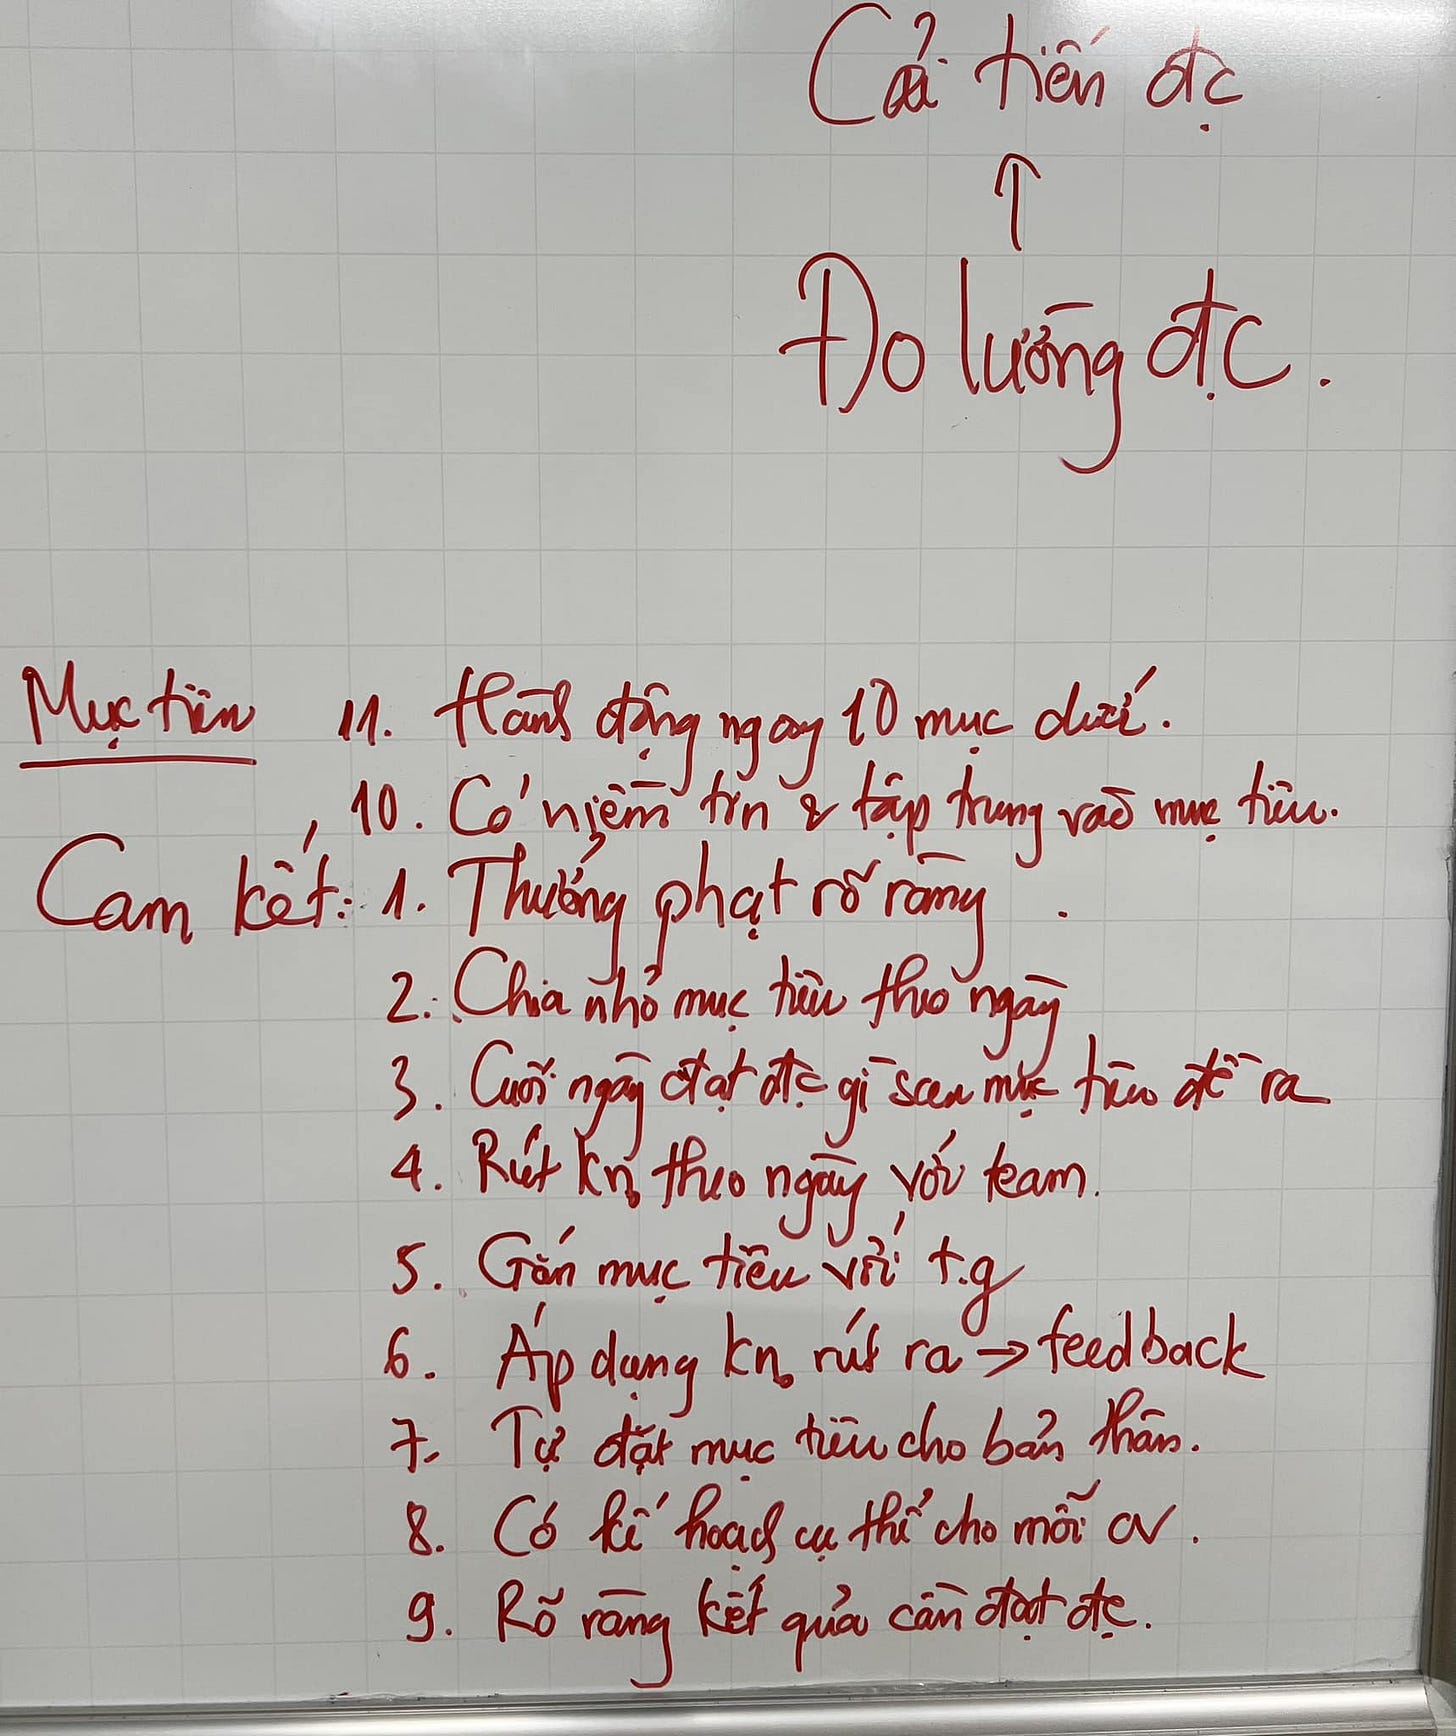 Cải tiến đc
↑
Đo lường đc.
Mục tiêu 11. Hành động ngay 10 mục dưới.
10. Có niệm tin & tập trung vào mục tiêu.
Cam kết: 1. Thưởng phạt rõ ràng.
2. Chia nhỏ mục tiêu theo ngày
3. Cuối ngày đạt đc gì sau mục tiêu đề ra
4. Rút kn theo ngày với team.
5. Gắn mục tiêu với t.g
6. Áp dụng kn rút ra → feedback
7. Tự đặt mục tiêu cho bản thân.
8. Có kế hoạch cụ thể cho mỗi cv.
9. Rõ ràng kết quả cần đạt đc.